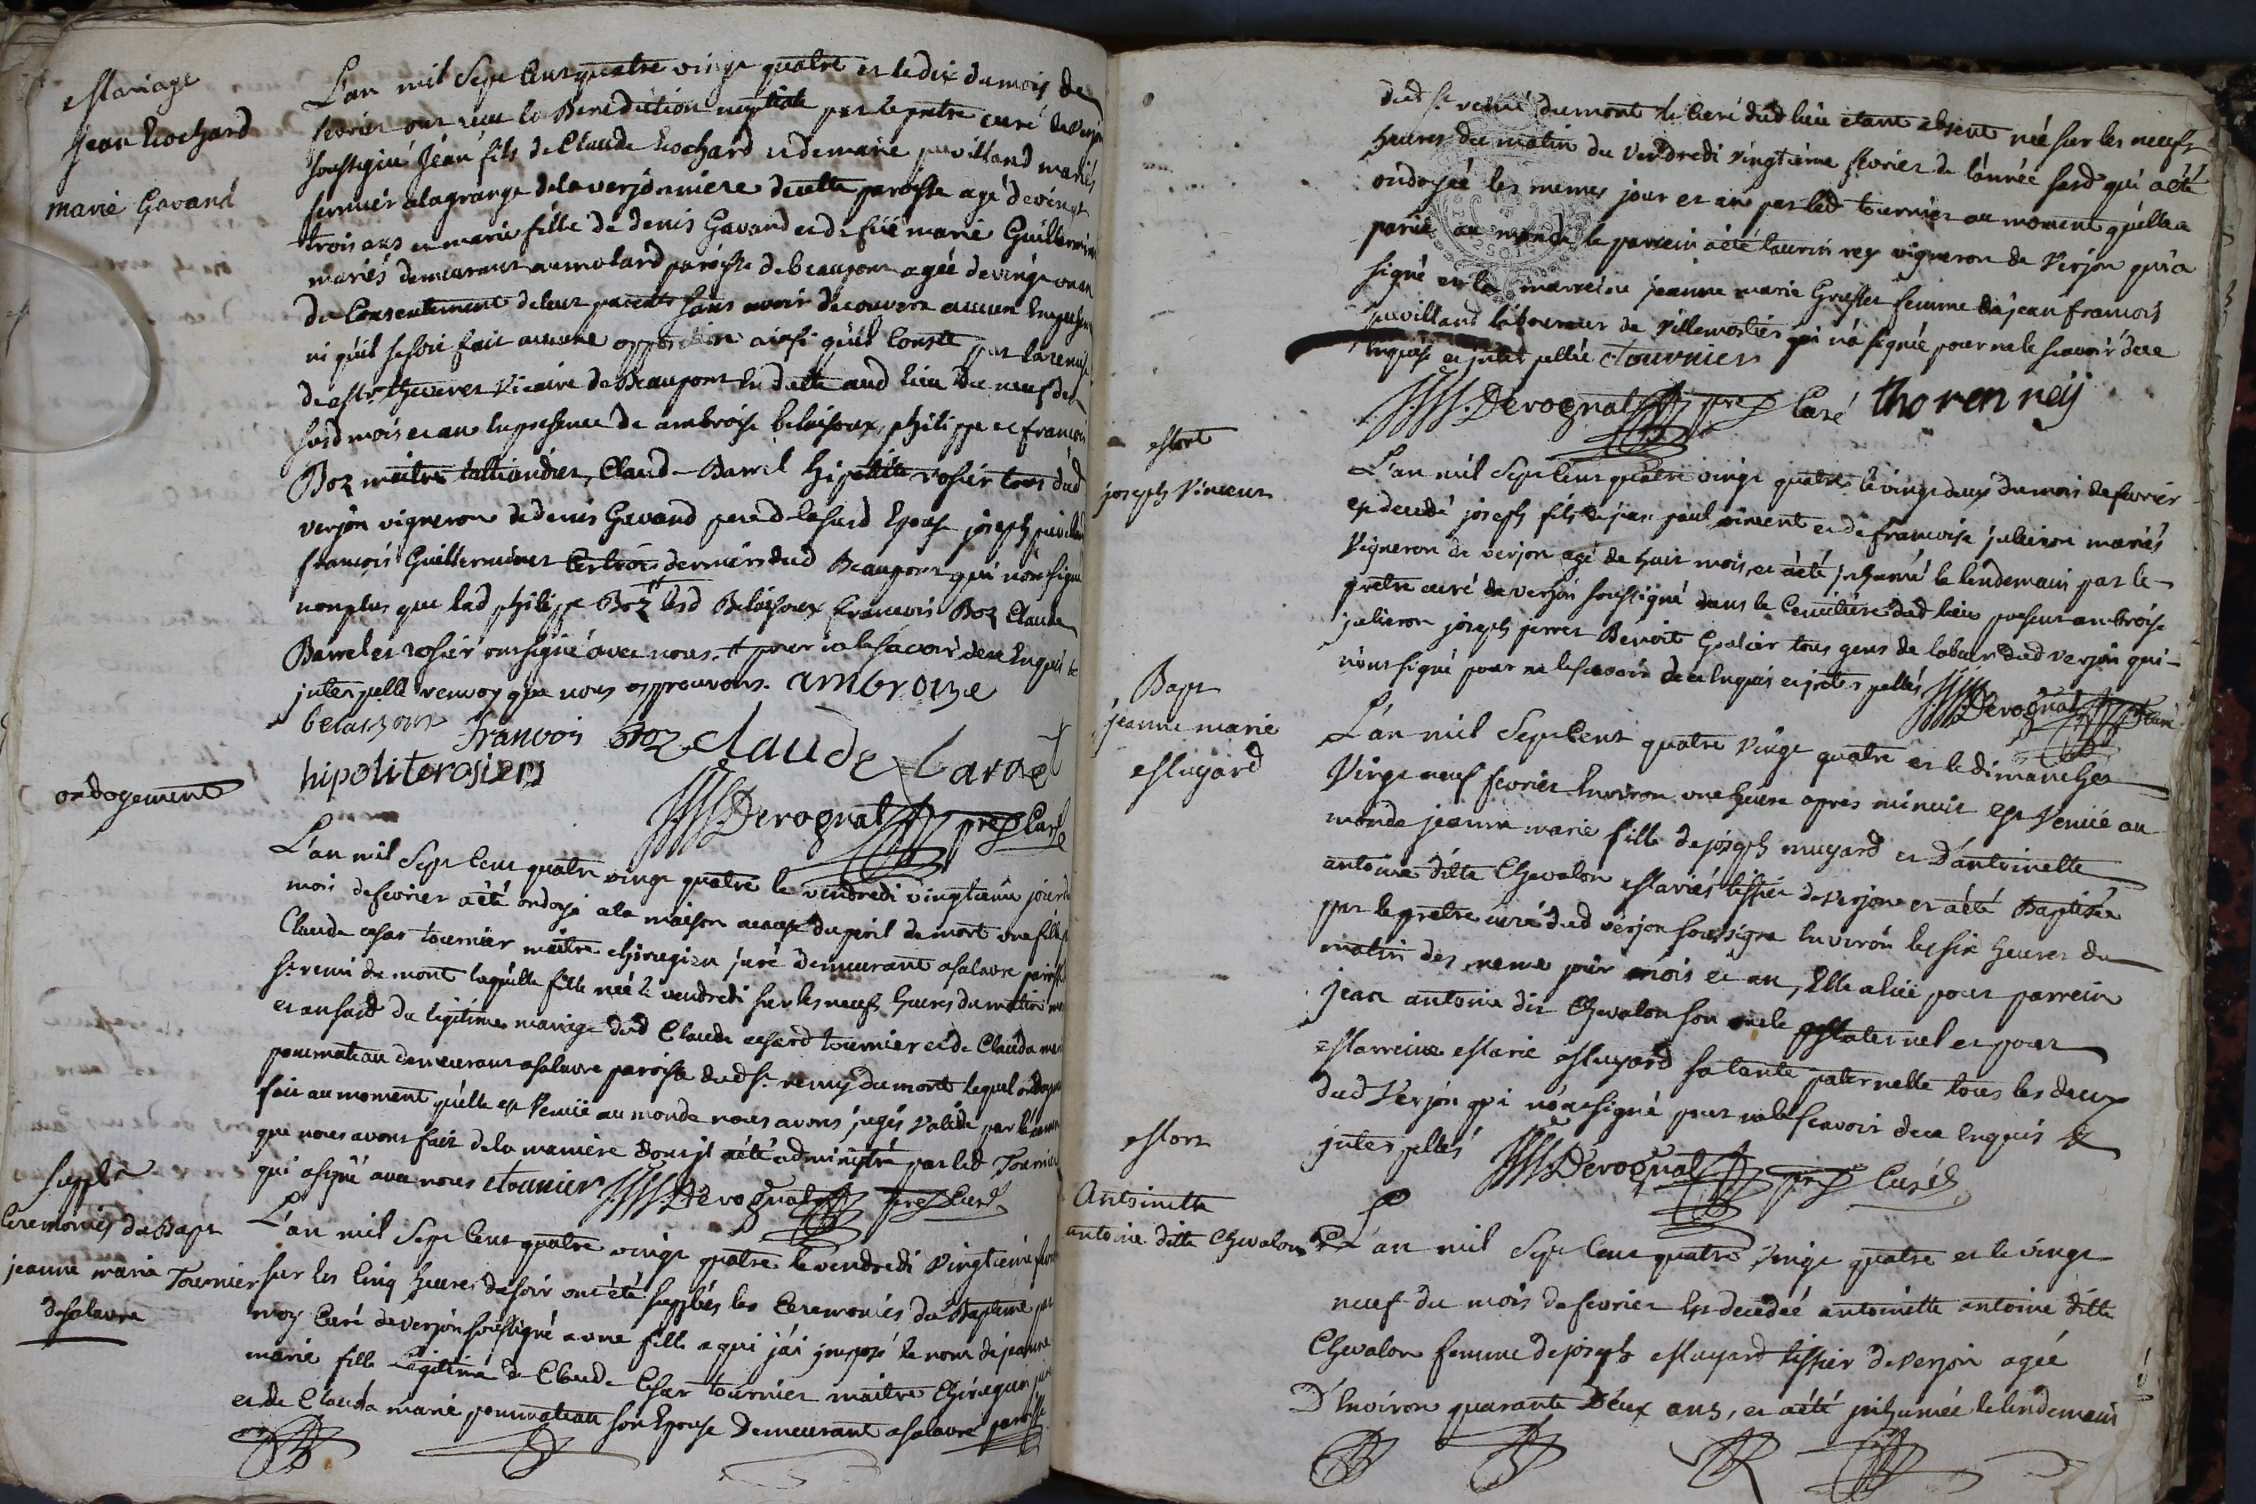 Mariage
jean Cochard
marie Gavand
L'an mil Sept Cent quatre vingt quatre et le dix du mois de
fevrier ont reçu la Benediction nuptiale par le pretre curé de verjon
soussigné Jéan fils de Claude Cochard et de marie puvilland mariés
fermier a lagrange de la verjonniere de cette paroisse agé de vingt
trois ans et marie fille de denis Gavand et de feüe marie Guillerminet
mariés demeurant au molard paroisse de beaupont agée de vingt
du Consentement de leur parents sans avoir decouvert aucun Empeche
ni qu'il se soit fait aucune opposition ainsi qu'il Conste par la remise
de Mr Thevenet Vicaire de Beaupont En datte aud lieu du neuf des
susd mois et an En presence de ambroise belaisoux, philippe et francois
Boz maitre Claude Barrel hipolite rosier tous dud
verjon vigneron de denis Gavand pere de la susd Epouse joseph puvilland
françois Guillerminet Les trois derniers dud Beaupont qui n'ont signé
non plus que led philippe Boz lesd Belaisoux francois Boz Claude
Barrel et rosier ont signé avec nous. + pour ne le sçavoir de ce Enquis et
interpellé renvoy que nous approuvons. ambroise
belaisoux francois Boz claude barrel
hipolite rosiers
Derognat pre Curé
ondoyement
L'an mil Sept Cent quatre vingt quatre le vendredi vingtieme jour du
mois de fevrier a été ondoyé a la maison a cause du peril de mort une fille
Claude cesar tournier maitre chirugien juré demeurant a salavre paroisse
St remi du mont laquelle fille née le vendredi sur les neufs heures du matin
et an susd du legitime mariage dud Claude cesard tournier et de Claudamarie
pommateau demeurant a salavre paroisse dud St remy du mont lequel ondoye
fait au moment qu'elle est Venüe au monde nous avons jugés valide par l'examen
que nous avons fait de la maniere dont jl a été administré par led Tournier
qui a signé avec nous tournier Derognat pre Curé
supplé
Ceremonies du Bapt
jeanne marie Tournier
de salavre
L'an mil Sept Cent quatre vingt quatre le vendredi vingtieme fevrier
sur les Cinq heures du soir ont été supplées les Ceremonies du Bapteme par
moy Curé de verjon soussigné a une fille a qui j'ai jmposé le nom de jeanne
marie fille Legitime de Claude Cesar tournier maitre Chirugien juré
et de Clauda marie pommateau son Epouse demeurant a salavre paroisse
dud St remi dumont le Curé dud lieu etant absent née sur les neufs
heures du matin du vendredi vingtieme fevrier de l'année susd qui a été
ondoyée les memes jour et an par led tournier au moment qu'elle a
parüe au monde le parrein a été taurin rey vigneron de Verjon qui a
signé et la marreine jeanne marie femme de jean francois
puvilland laboureur de villemotier qui n'a signée pour ne le sçavoir de ce
Enquise et interpellée tournier
Derognat pre Curé thoren reÿ
Mort
joseph Vincent
L'an mil Sept Cent quatre vingt quatre le vingt deux du mois de fevrier
est decedé joseph fils de jean paul vincent et de francoise julieron mariés
vigneron de verjon agé de huit mois et a été jnhumé le lendemain par le
pretre curé de verjon soussigné dans le Cemitiere dud lieu present ambroise
julieron joseph perret Benoit tous gens de labeur dud verjon qui
n'ont signé pour ne le sçavoir de ce Enquis et jnterpellés Derognat pre Curé
Bapt
jeanne marie
Muyard
L'an mil Sept Cent quatre vingt quatre et le dimanche
Vingt neuf fevrier Environ une heure après minuit est Venüe au
monde jeanne marie fille de joseph muyard et D'antoinette
antoine ditte Chevalon Mariés tissier de verjon et a été Baptisée
par le pretre curé dud verjon soussigné Environ les six heures du
matin des meme jour mois et an, Elle a hüe pour parrein
jean antoine dit Chevalon son oncle Maternel et pour
Marreine Marie Muyard sa tante paternelle tous les deux
dud Verjon qui n'ont signé pour ne le scavoir de ce Enquis et
jnterpellés Derognat pre Curé
Mort
Antoinette
antoine ditte Chevalon
L'an mil Sept Cent quatre vingt quatre et le vingt
neuf du mois de fevrier Est decedéé antoinette antoine ditte
Chevalon femme de joseph Muyard tissier de verjon agéé
D'Environ quarante Deux ans, et a été jnhumée le lendemain